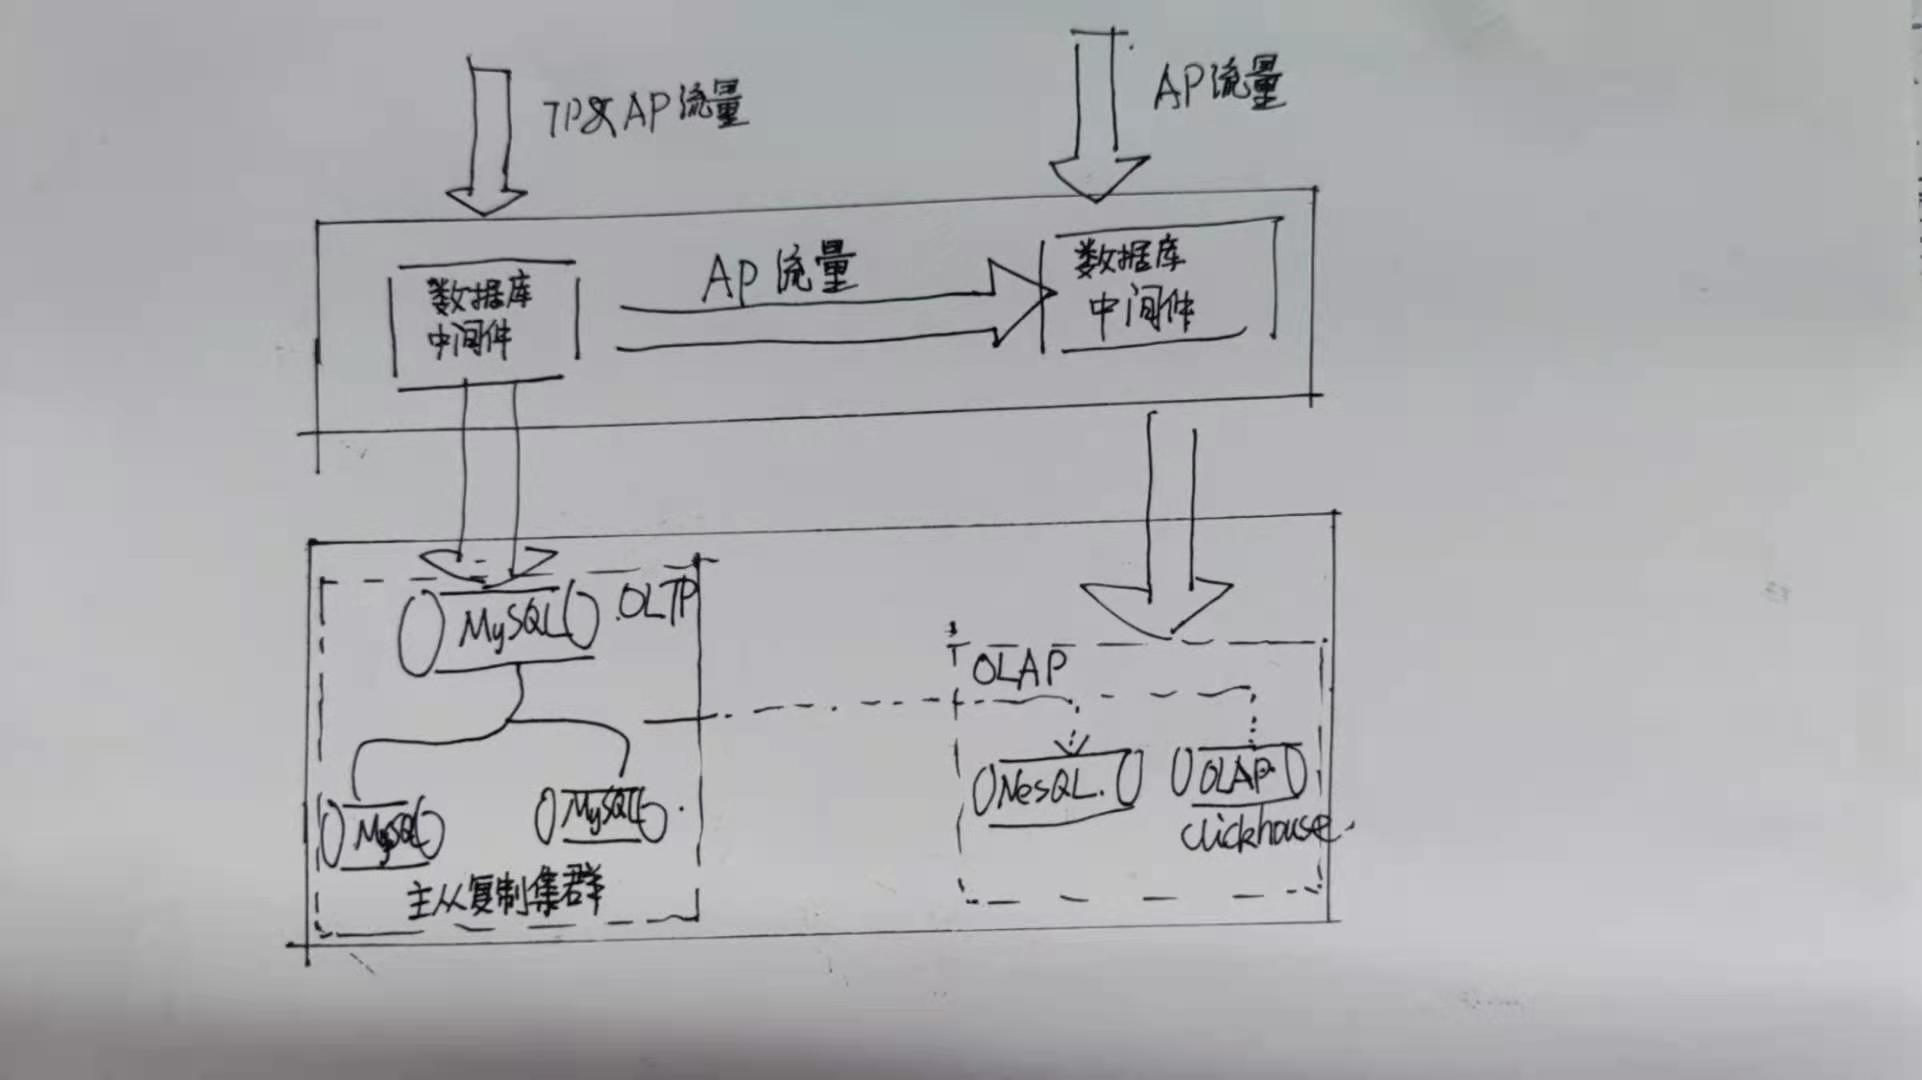 TP及AP流量
AP流量
数据库
中间件
AP流量
数据库
中间件
MySQL
OLTP
MySQL
MySQL
主从复制集群
OLAP
NesQL.
OLAP
clickhouse